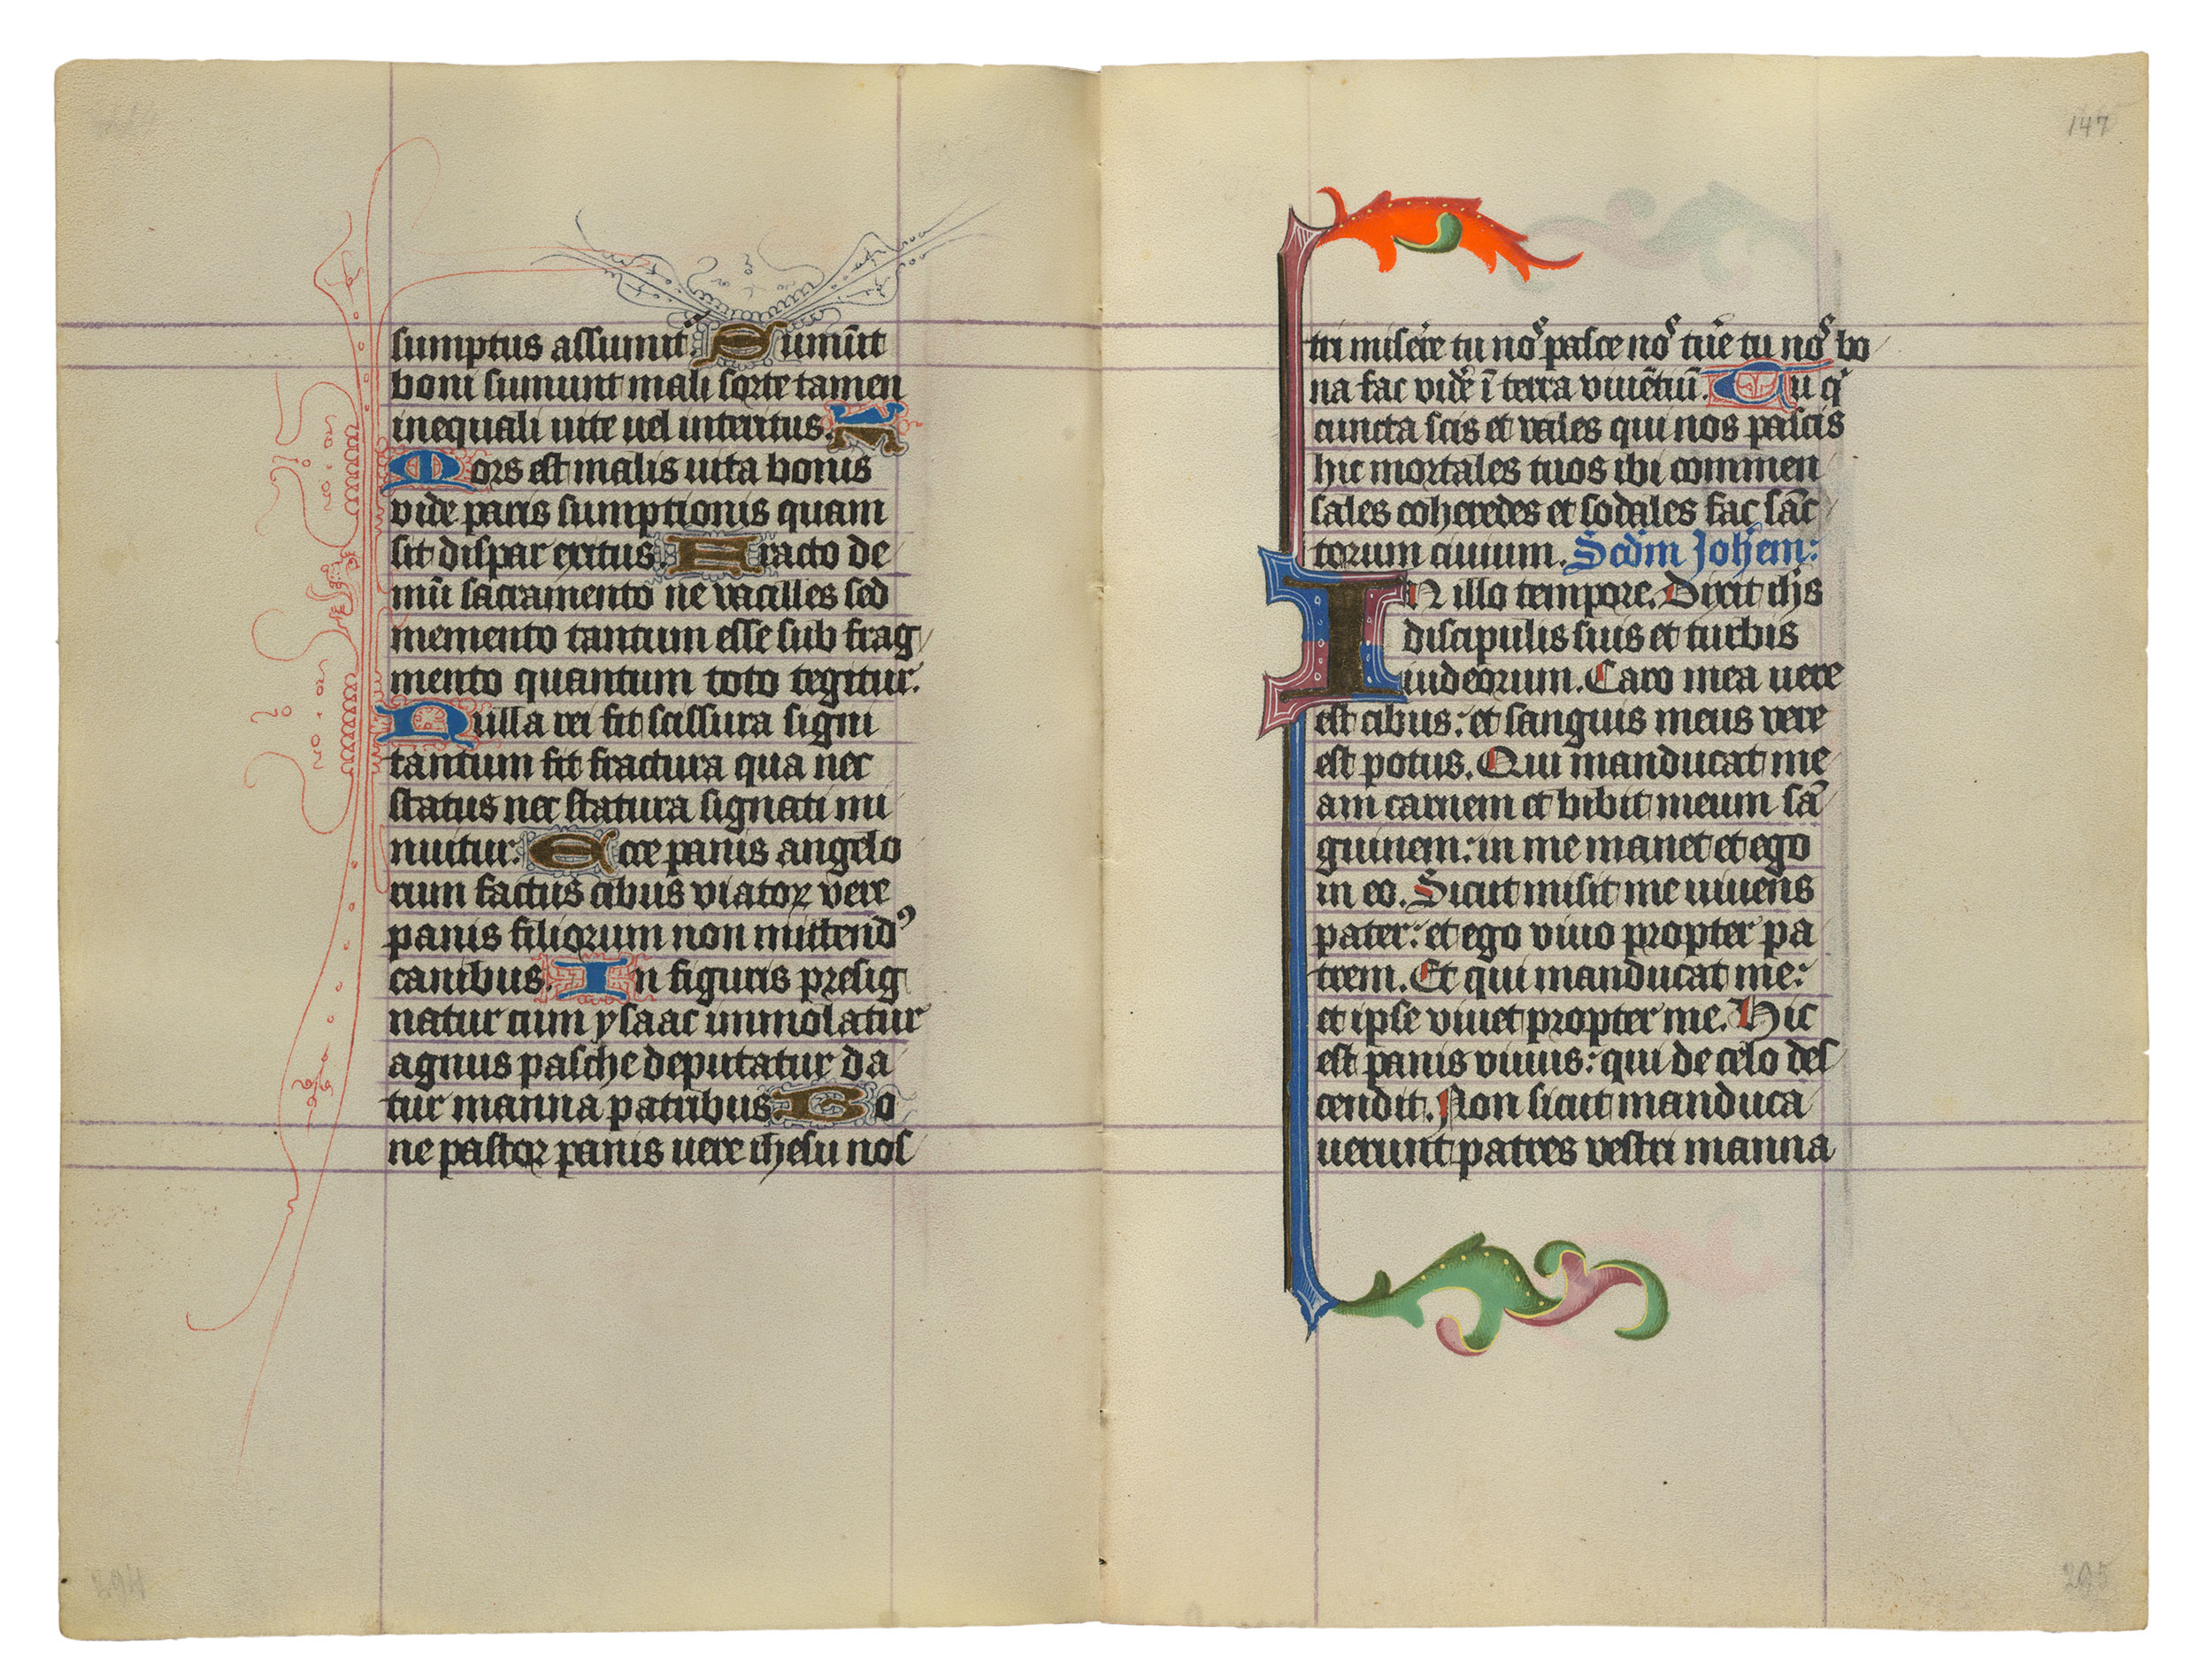 sumptus assumit. Sumūt
boni sumunt mali sorte tamen
inequali uite uel interitus.
Mors est malis uita bonis
vide paris sumptionis quam
sit dispar exitus. Fracto de
mū sacramento ne vacilles sed
memento tantum esse sub frag
mento quantum toto tegitur.
Nulla rei fit scissura signi
tantum fit fractura qua nec
status nec statura signati mi
nuitur. Ecce panis angelo
rum factus cibus viatoꝝ vere
panis filiorum non mittendꝰ
canibus. In figuris presig
natur cum ysaac immolatur
agnus pasche deputatur da
tur manna patribus Bo
ne pastor panis uere ihesu nos
147
tri miserere tu nos pasce nos tuere tu nos bo
na fac vidē ī terra viuētiū. Tu q
cuncta scis et vales qui nos pascis
hic mortales tuos ibi commen
sales coheredes et sodales fac sāc
torum ciuium. Scdm Johem:
IN illo tempore. Dixit ihs
discipulis suis et turbis
iudeorum. Caro mea uere
est cibus: et sanguis meus vere
est potus. Qui manducat me
am carnem et bibit meum sā
guinem: in me manet et ego
in eo. Sicut misit me uiuens
pater: et ego viuo propter pa
trem. Et qui manducat me:
et ipse viuet propter me. Hic
est panis viuus: qui de celo des
cendit. Non sicut manduca
uerunt patres vestri manna
294
295